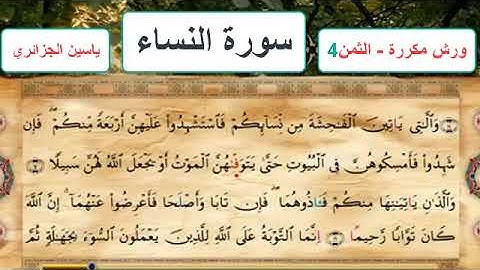 ورش مكررة - الثمن4
سورة النساء
ياسين الجزائري
وَالَّتِى يَاتِينَ الْفَاحِشَةَ مِن نِّسَآئِكُمْ فَاسْتَشْهِدُوا عَلَيْهِنَّ أَرْبَعَةً مِّنكُمْ فَإِن
شَهِدُوا فَأَمْسِكُوهُنَّ فِى الْبُيُوتِ حَتَّىٰ يَتَوَفَّىٰهُنَّ الْمَوْتُ أَوْ يَجْعَلَ اللَّهُ لَهُنَّ سَبِيلًا
وَالَّذَٰنِ يَاتِيَٰنِهَا مِنكُمْ فَـَٔاذُوهُمَا فَإِن تَابَا وَأَصْلَحَا فَأَعْرِضُوا عَنْهُمَا إِنَّ اللَّهَ
كَانَ تَوَّابًا رَّحِيمًا إِنَّمَا التَّوْبَةُ عَلَى اللَّهِ لِلَّذِينَ يَعْمَلُونَ السُّوٓءَ بِجَهَٰلَةٍ ثُمَّ